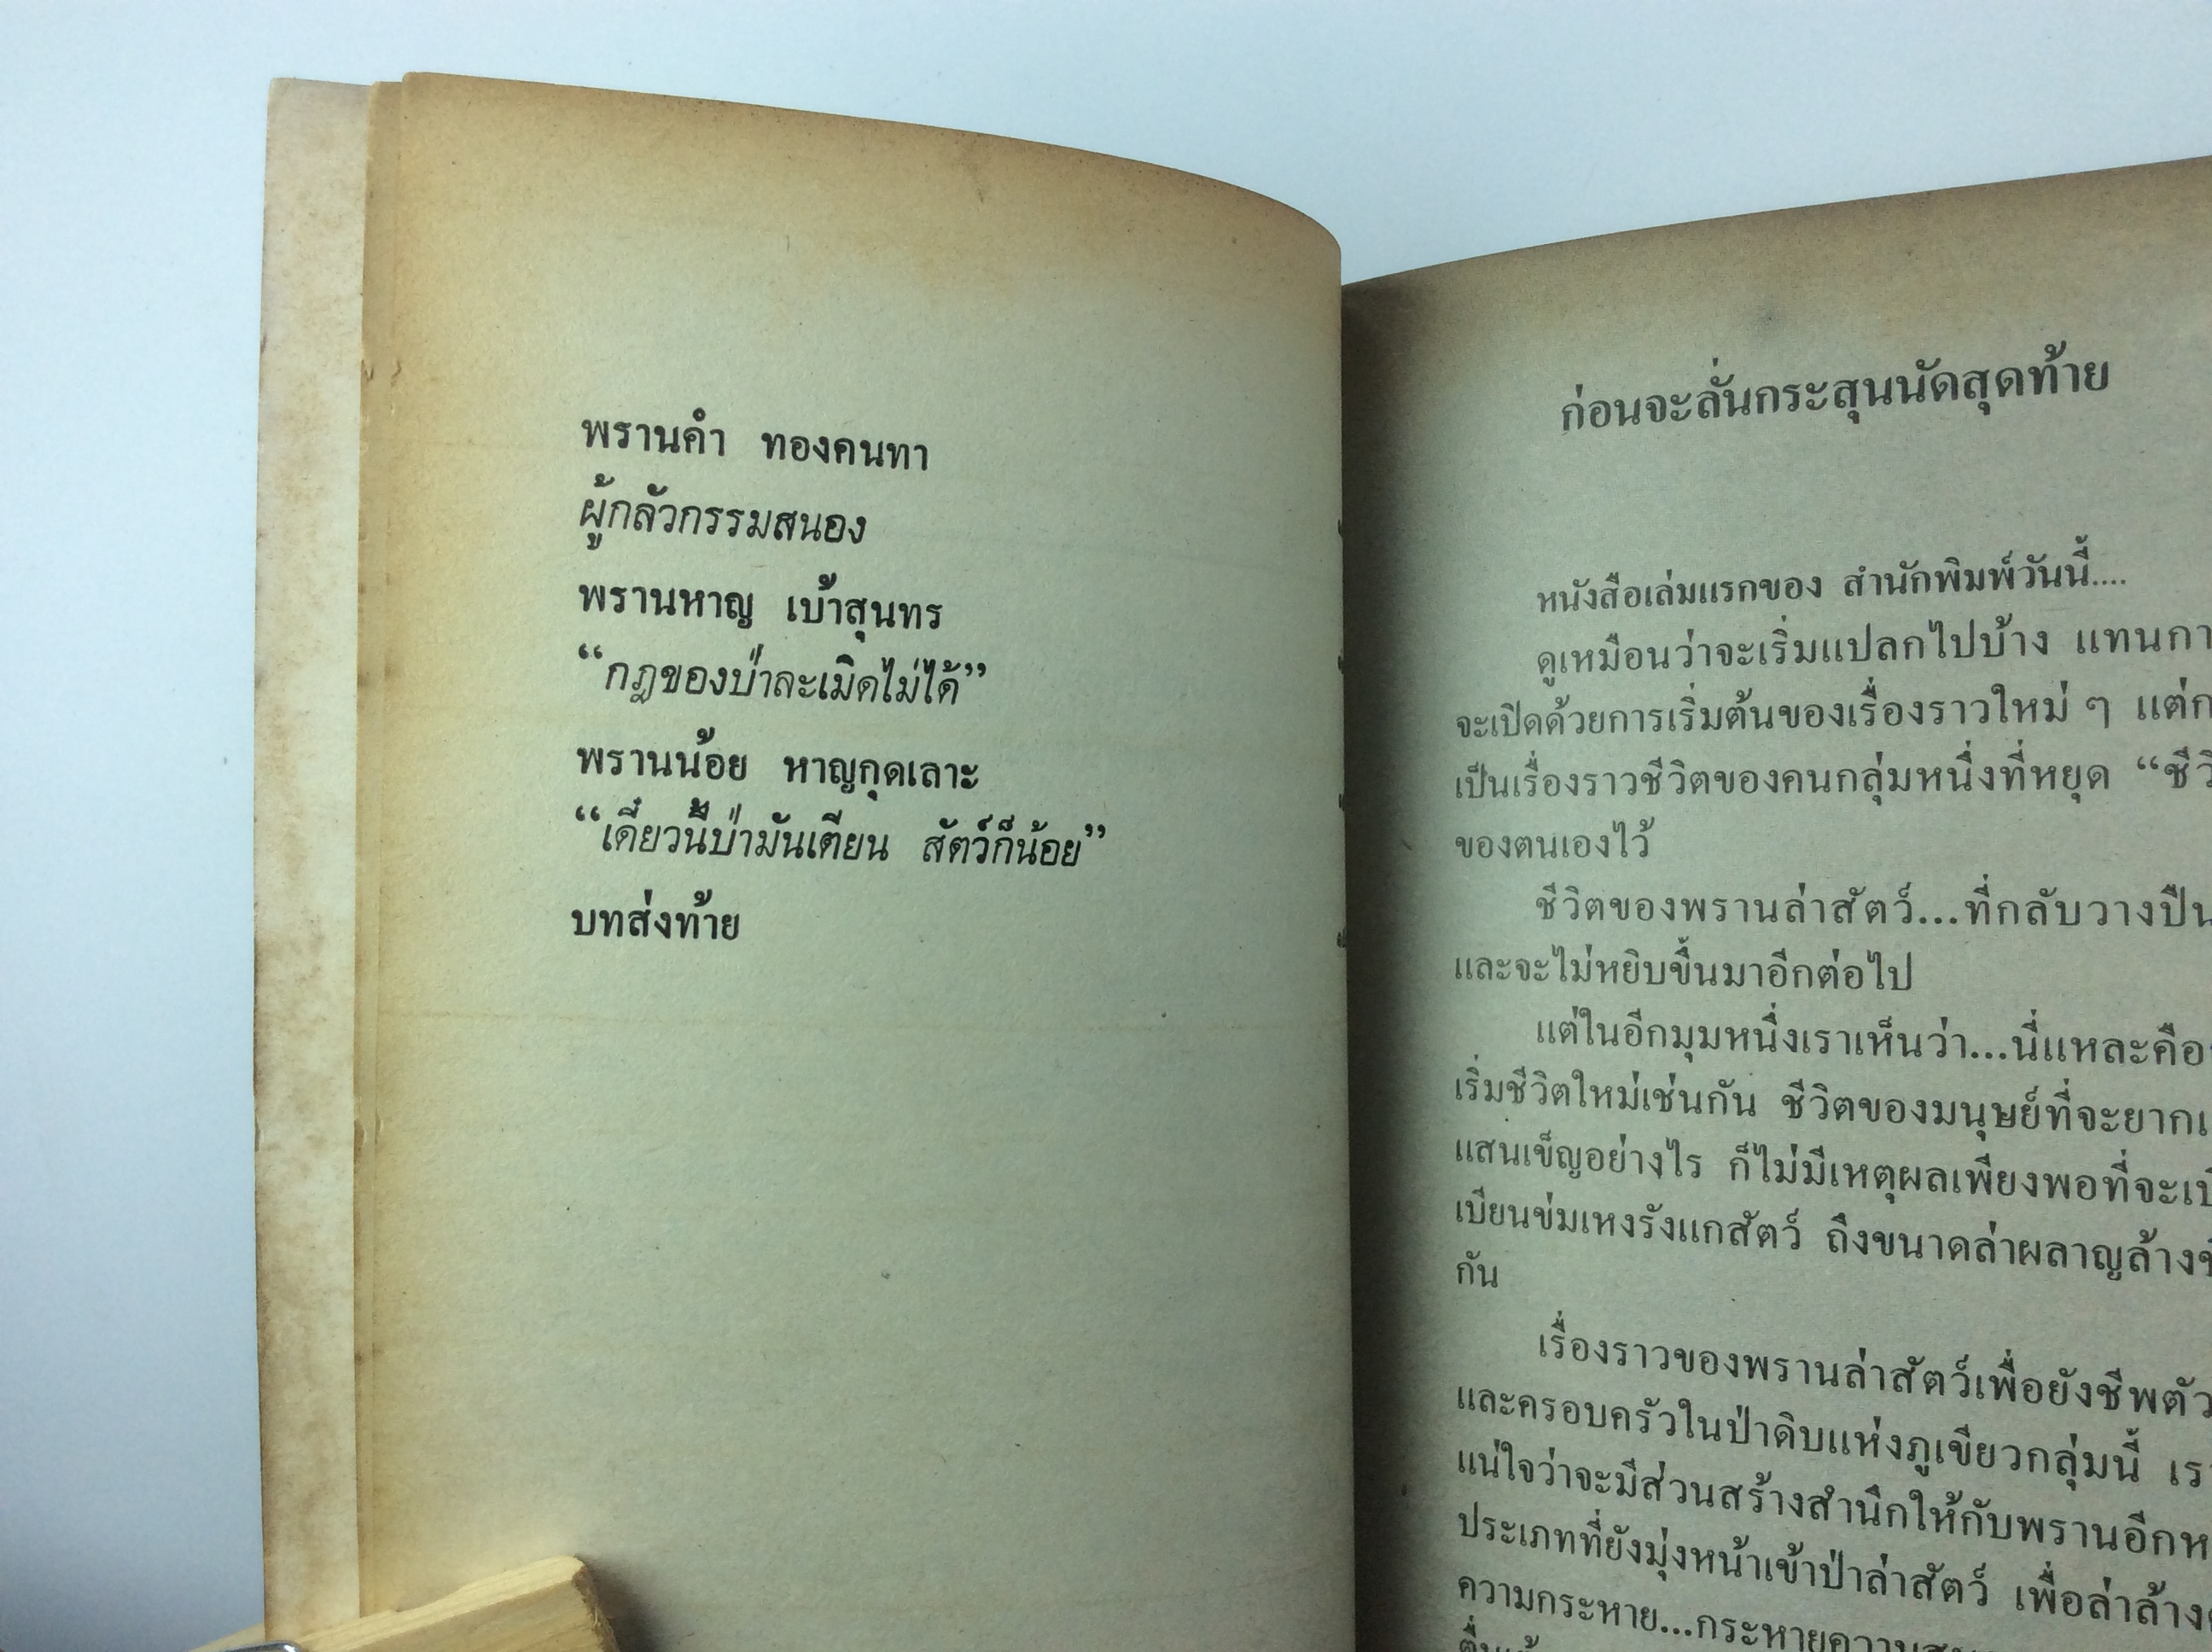 พรานคำ ทองคนทา
ผู้กลัวกรรมสนอง
พรานหาญ เบ้าสุนทร
“กฎของป่าละเมิดไม่ได้”
พรานน้อย หาญกุดเลาะ
“เดี๋ยวนี้ป่ามันเตียน สัตว์ก็น้อย”
บทส่งท้าย
ก่อนจะลั่นกระสุนนัดสุดท้าย
หนังสือเล่มแรกของ สำนักพิมพ์วันนี้....
ดูเหมือนว่าจะเริ่มแปลกไปบ้าง แทนกา
จะเปิดด้วยการเริ่มต้นของเรื่องราวใหม่ ๆ แต่ก
เป็นเรื่องราวชีวิตของคนกลุ่มหนึ่งที่หยุด “ชีวิ
ของตนเองไว้
ชีวิตของพรานล่าสัตว์...ที่กลับวางปืน
และจะไม่หยิบขึ้นมาอีกต่อไป
แต่ในอีกมุมหนึ่งเราเห็นว่า...นี่แหละคือ
เริ่มชีวิตใหม่เช่นกัน ชีวิตของมนุษย์ที่จะยากเ
แสนเข็ญอย่างไร ก็ไม่มีเหตุผลเพียงพอที่จะเบี
เบียนข่มเหงรังแกสัตว์ ถึงขนาดล่าผลาญล้าง
กัน
เรื่องราวของพรานล่าสัตว์เพื่อยังชีพตัว
และครอบครัวในป่าดิบแห่งภูเขียวกลุ่มนี้ เรา
แน่ใจว่าจะมีส่วนสร้างสำนึกให้กับพรานอีกห
ประเภทที่ยังมุ่งหน้าเข้าป่าล่าสัตว์ เพื่อล่าล้าง
ความกระหาย...กระหายความ